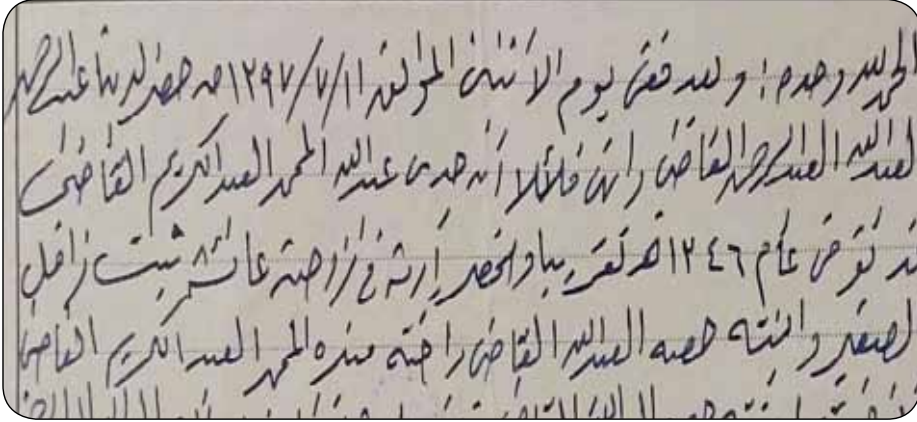 الحمد لله وحده؛ وبعد ففي يوم الاثنين الموافق ١٣٩٧/٧/١١هـ حضر لدينا عبدالرحمن
العبدالله العبدالرحمن القاضي وأنهى قائلا أن جدي عبدالله المحمد العبدالكريم القاضي
قد توفي عام ١٣٤٦ هـ تقريبا وانحصر إرثه في زوجته عائشه بنت
الصغير وابنته حصه العبدالله القاضي واخته منيره المحمد العبدالكريم القاضي